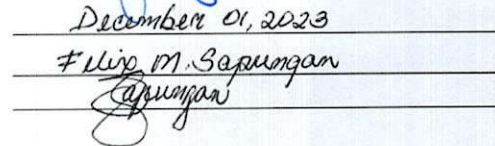 December 01, 2023
Felix M. Sapungan
Sapungan